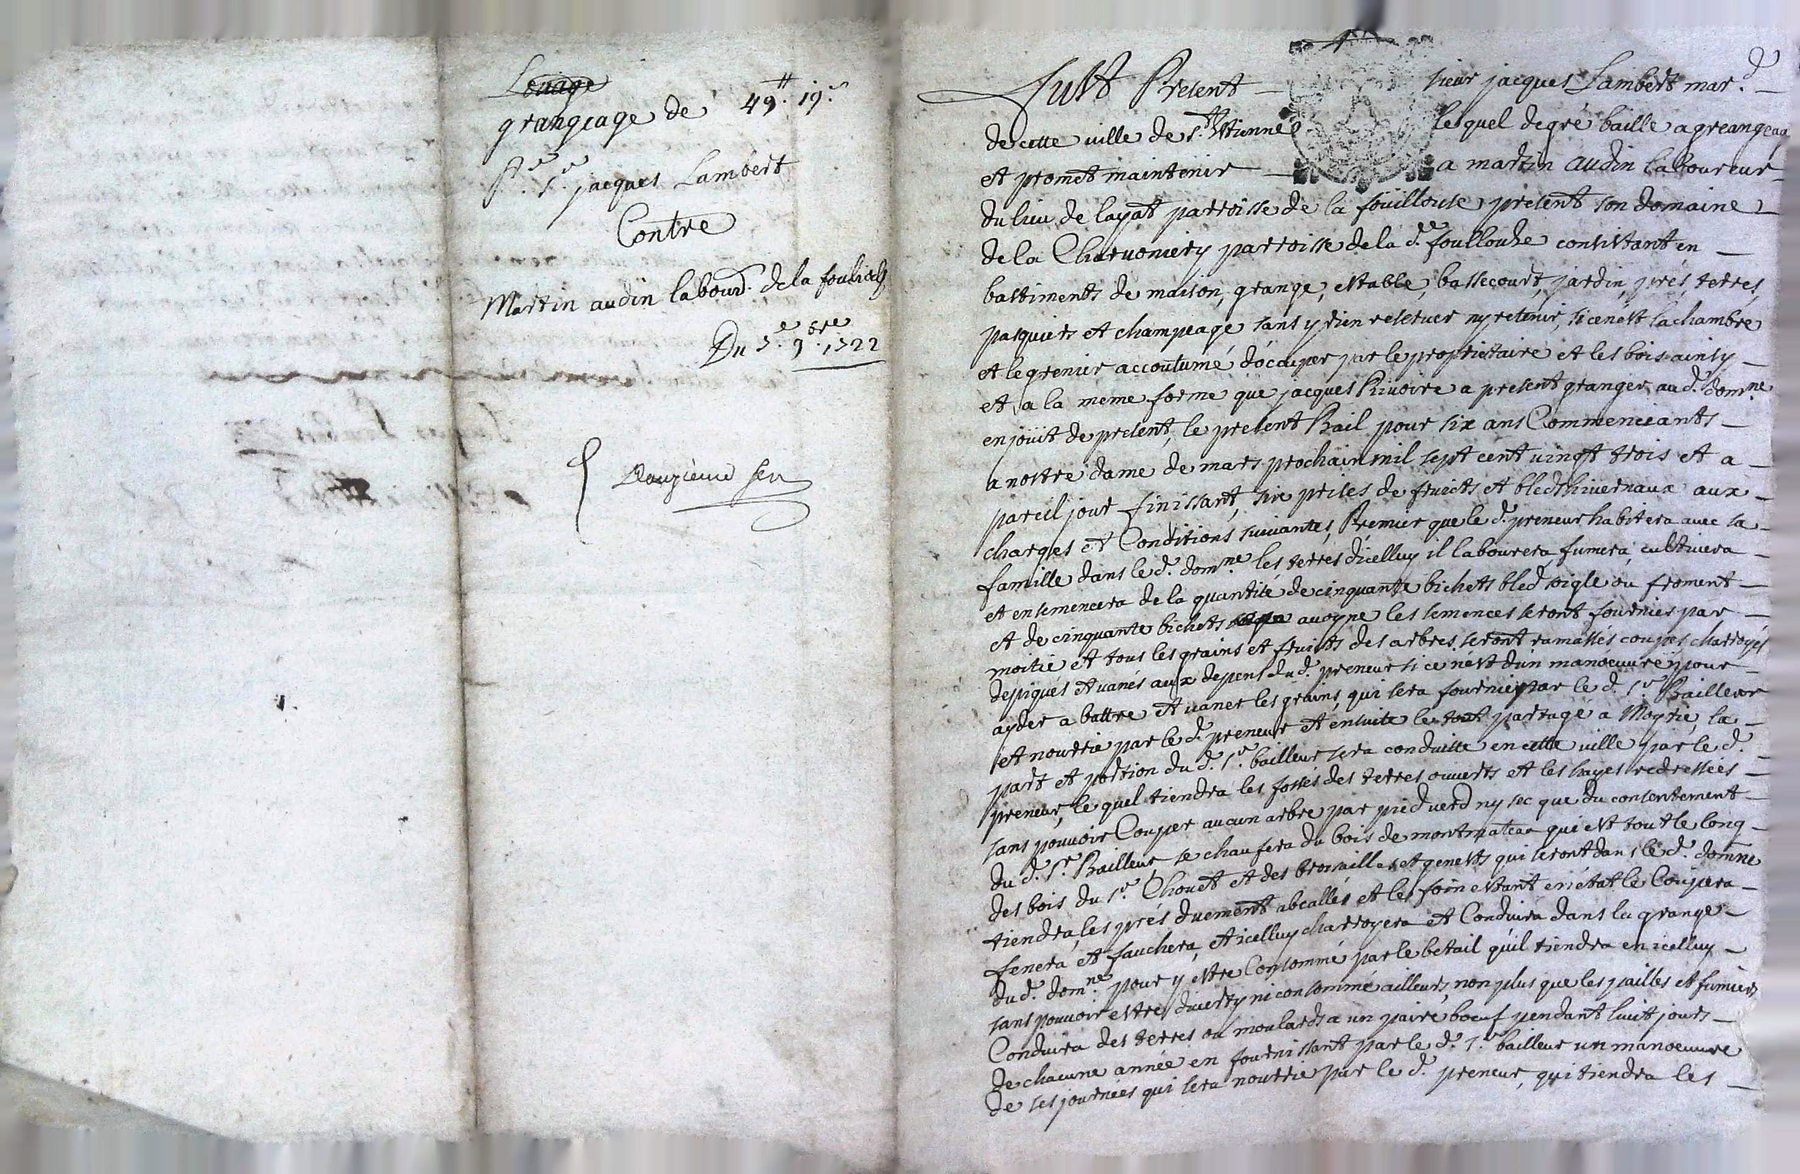 Louage
grangeage de 49ᵗᵗ 19ˢ
Pʳ Sʳ jacques Lambert
Contre
Martin audin labourʳ. de la foulio
Du 5ᵉ 9ᵇʳᵉ 1722
fut Present sieur jacques Lambert marᵈ.
de cette ville de sᵗ Ettienne lequel de gré baille a greangeag
et promet maintenir a martin audin laboureur
du lieu de layat parroisse de la fouillouse present son domaine
de la Charvoniery parroisse de la dᵉ foullouze consistant en
bastiments de maison, grange, estable, bassecourt, jardin, prés, terres,
pasquiers et champeage sans y rien reserver ny retenir, si ce nest la chambre
et le grenier accoutumé d'ocuper par le proprietaire et les bois ainsy
et a la meme forme que jacques Rivoire a present granger au dᵗ domⁿᵉ
en joüit de present, le present Bail pour six ans Commenceants
a nostre dame de mars prochain mil sept cent vingt trois et a
pareil jour finissant, six prises de fruicts et bleds hivernaux aux
charges et Conditions suivantes, Premier que le dᵗ preneur habitera avec sa
famille dans le dᵗ domⁿᵉ les terres dicelluy il labourera, fumera, cultivera
et ensemencera de la quantité de cinquante bichets bled soigle ou froment
et de cinquante bichets avoyne les semences seront fournies par
moitie et tous les grains et fruits des arbres seront ramassés coupés charroyés
depiques et vanés aux depens du dᵗ preneur si ce nest d'un manoeuvre pour
ayder a battre et vaner les grains, qui sera fournie par le dᵗ sʳ Bailleur
et nourrie par le dᵗ preneur et ensuite le tout partagé a Moytié, la
part et portion du dᵗ sʳ bailleur sera conduitte en cette ville par le dᵗ
preneur, le quel tiendra les fossés des terres ouverts et les hayes redressées
sans pouvoir Couper aucun arbre par pied verd ny sec que du consentement
du dᵗ sʳ Bailleur se chaufera du bois de mortmateau qui est tout le long
des bois du sʳ Chouet et des brossailles et genests qui seront dans le dᵗ domⁿᵉ
tiendra les prés duement abeallés et les foin estant en état le Coupera
fenera et fauchera, et icelluy charroyera et Conduira dans la grange
du dᵗ domⁿᵉ pour y estre Consommé par le betail quil tiendra en icelluy
sans pouvoir estre diverty ni consommé ailleurs non plus que les pailles et fumiers
Conduira des terres ou moulards a un paire boeuf pendant huit jours
de chacune année en fournissant par le dᵗ sʳ bailleur un manoeuvre
de ses journées qui sera nourrie par le dᵗ preneur, qui tiendra les